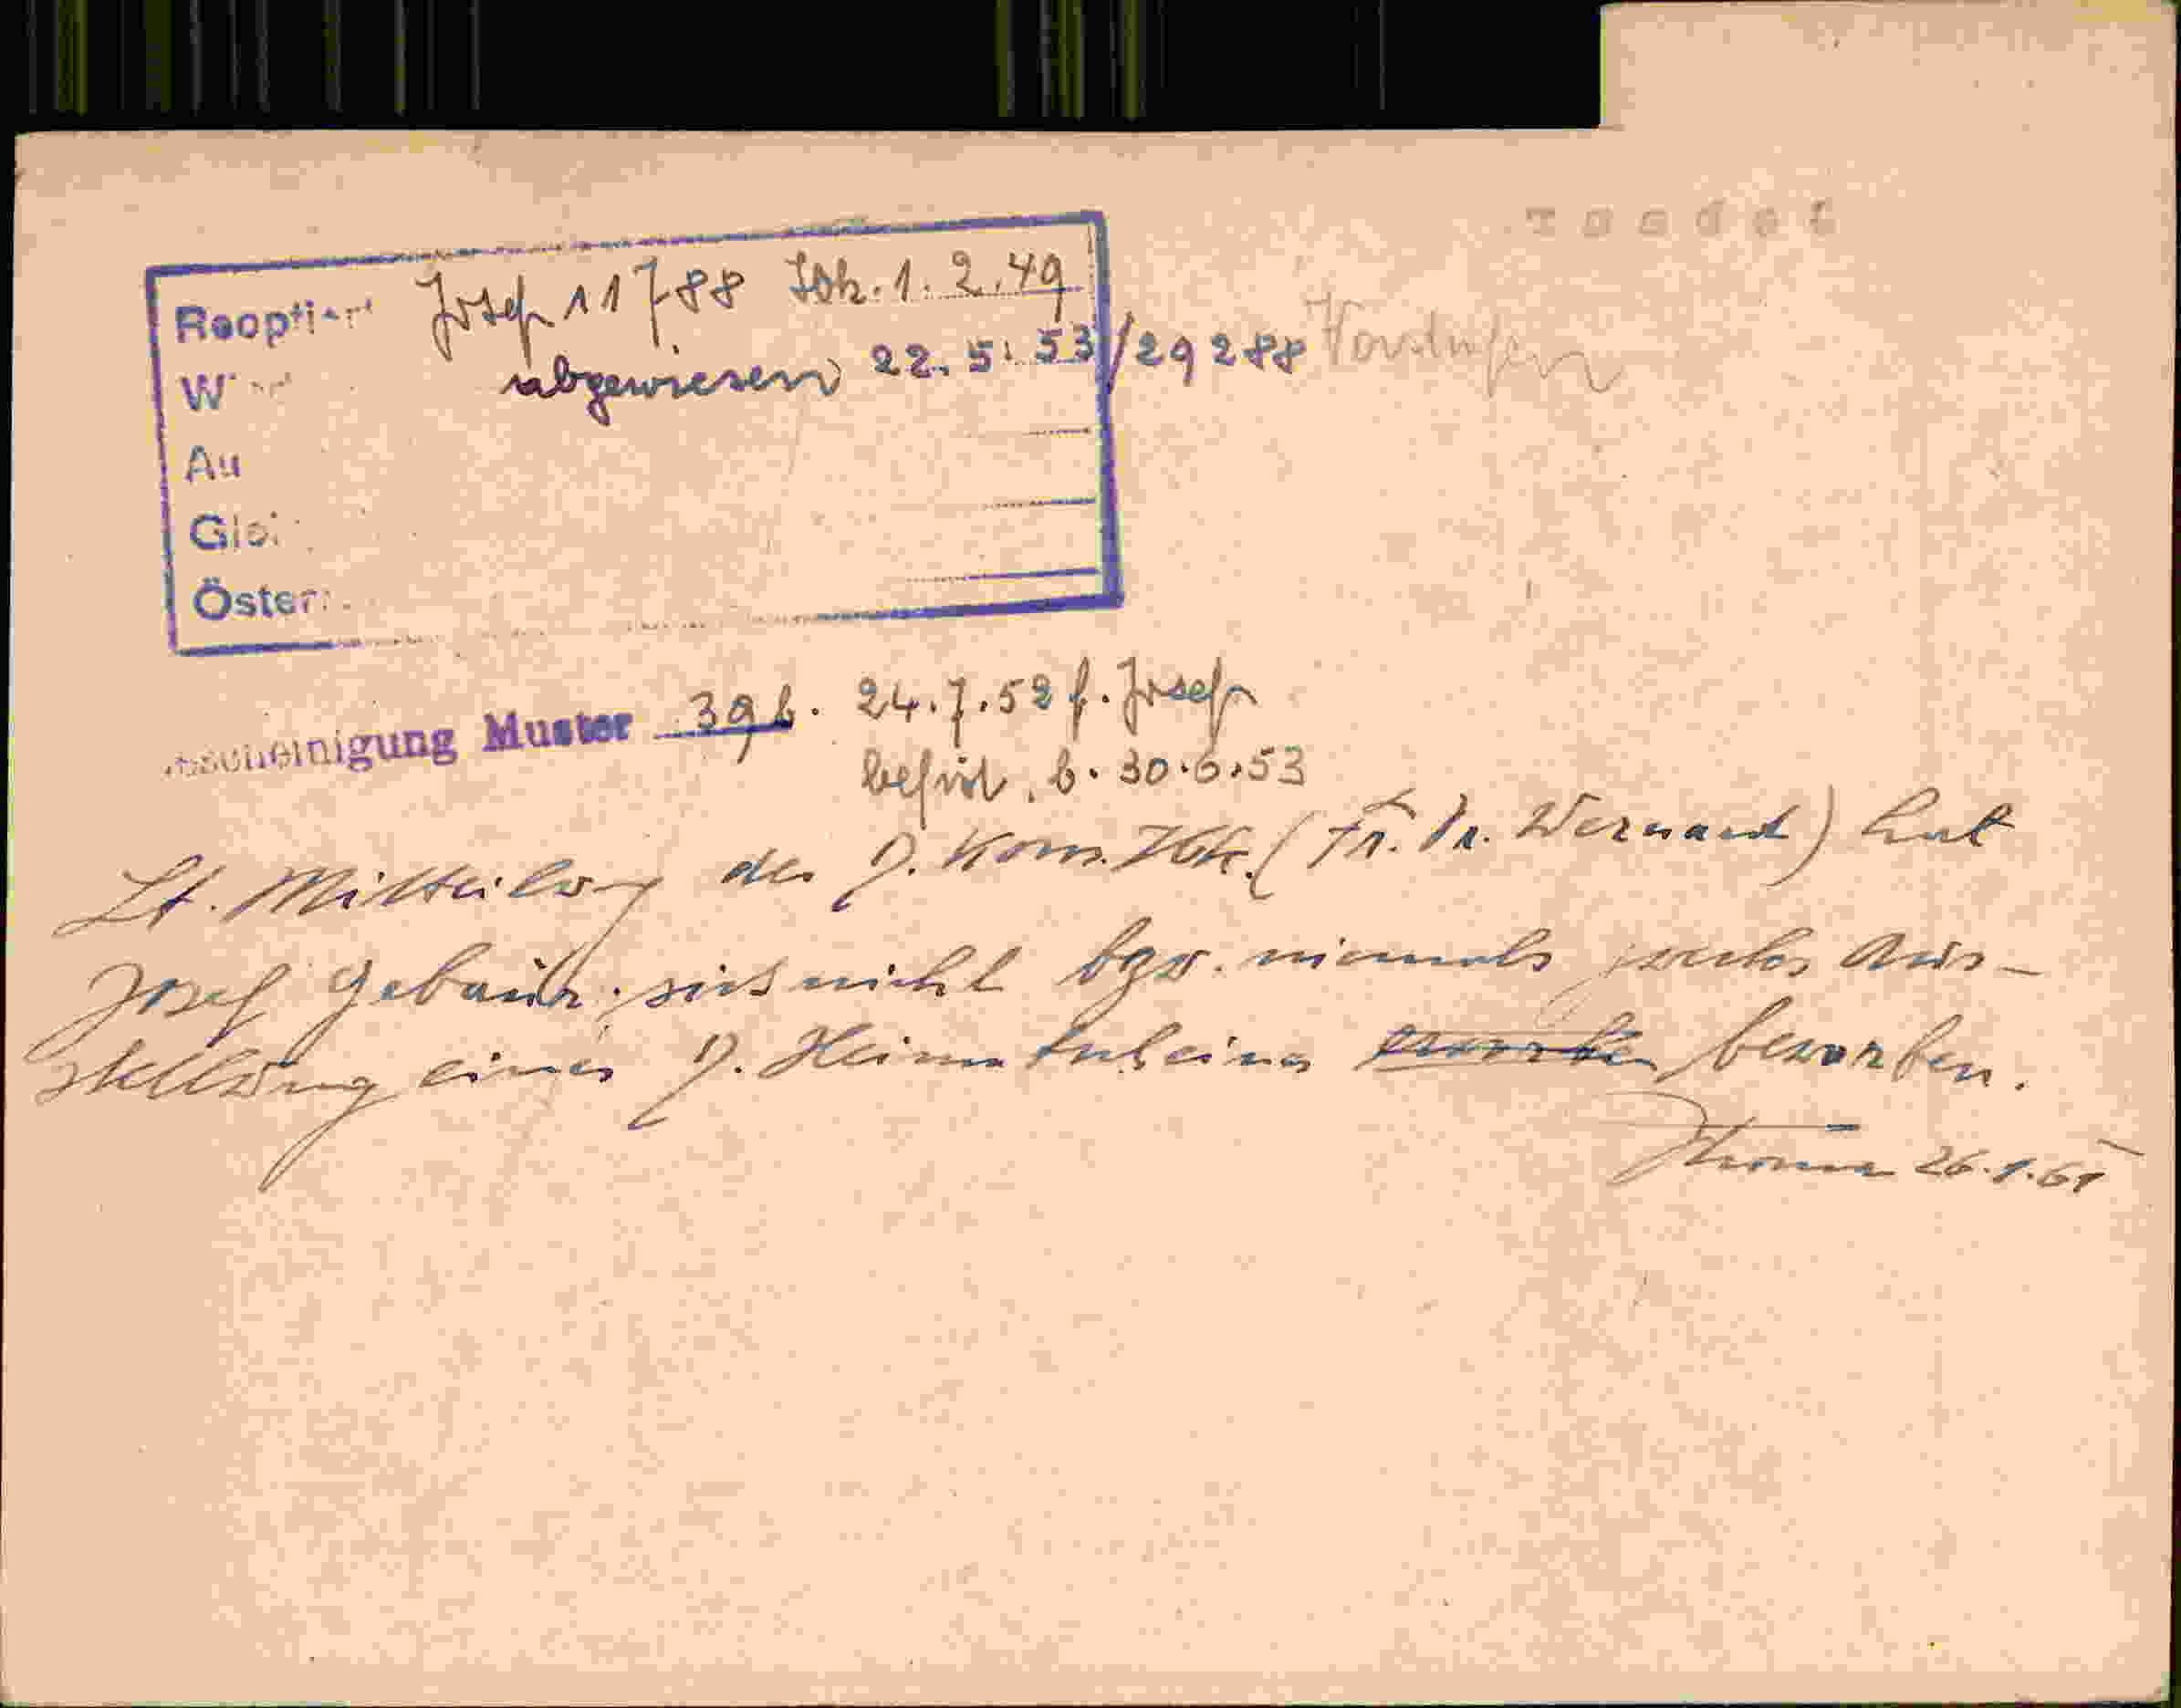 Reoptiert Josef 11788 Ibk. 1.2.49
abgewiesen 22.5.53/29288
Au
Öster
Bescheinigung Muster 39b. 24.7.52 f. Josef
befrist. b. 30.6.53
Lt. Mitteilung des D. Kons. Ibk. (Fr. Dr. Wernard) hat
Josef Gebaur sich nicht bzw. niemals zwecks Aus-
stellung eines D. Heimatscheines beworben.
26.1.61